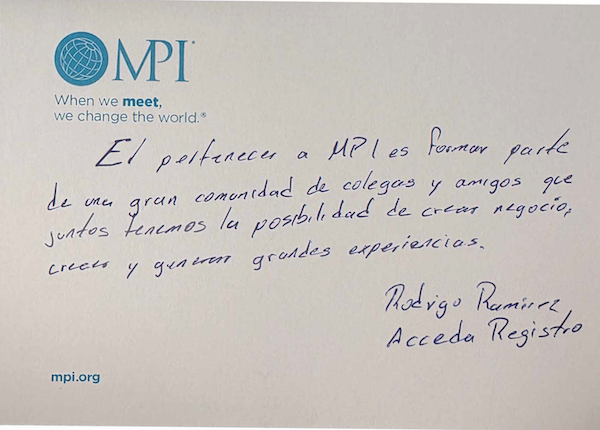 MPI®
When we meet,
we change the world.®
El pertenecer a MPI es formar parte
de una gran comunidad de colegas y amigos que
juntos tenemos la posibilidad de crear negocio,
crecer y generar grandes experiencias.
Rodrigo Ramirez
Acceda Registro
mpi.org